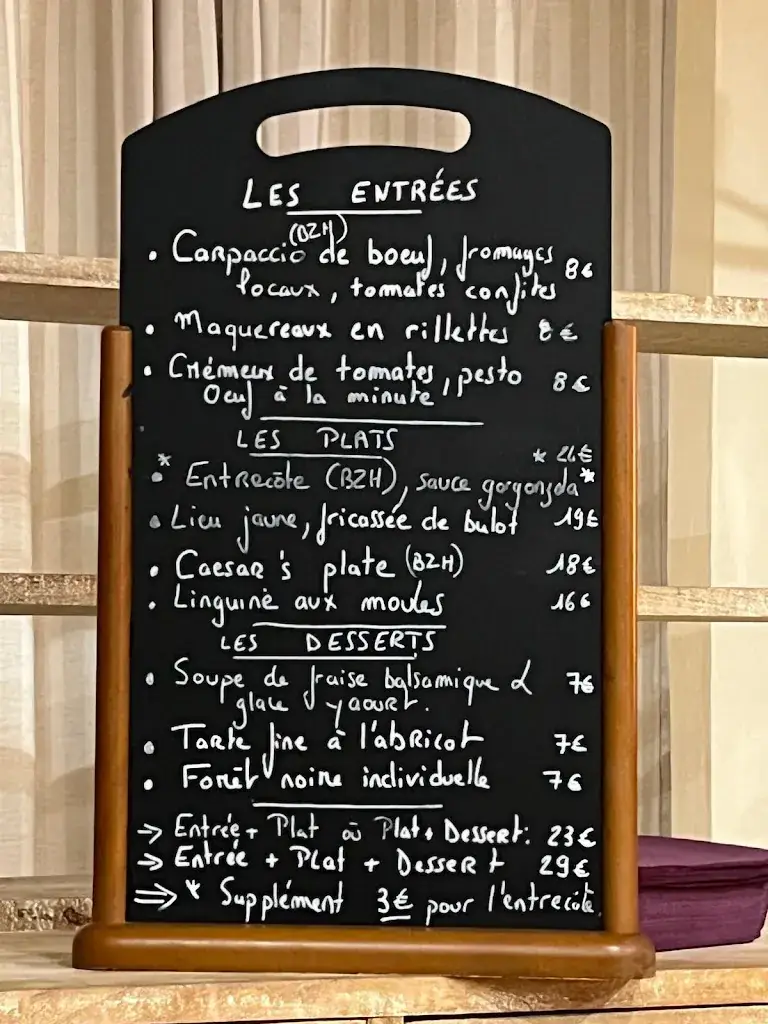 LES ENTRÉES
(BZH)
• Carpaccio de boeuf, fromages 8€
locaux, tomates confites
• Maquereaux en rillettes 8€
• Crémeux de tomates, pesto 8€
Oeuf à la minute
LES PLATS
* 26€
* • Entrecôte (BZH), sauce gorgonzola *
• Lieu jaune, fricassée de bulot 19€
• Caesar's plate (BZH) 18€
• Linguine aux moules 16€
LES DESSERTS
• Soupe de fraise balsamique & 7€
glace yaourt.
• Tarte fine à l'abricot 7€
• Forêt noire individuelle 7€
→ Entrée + Plat ou Plat + Dessert : 23€
→ Entrée + Plat + Dessert 29€
⇒ * Supplément 3€ pour l'entrecôte